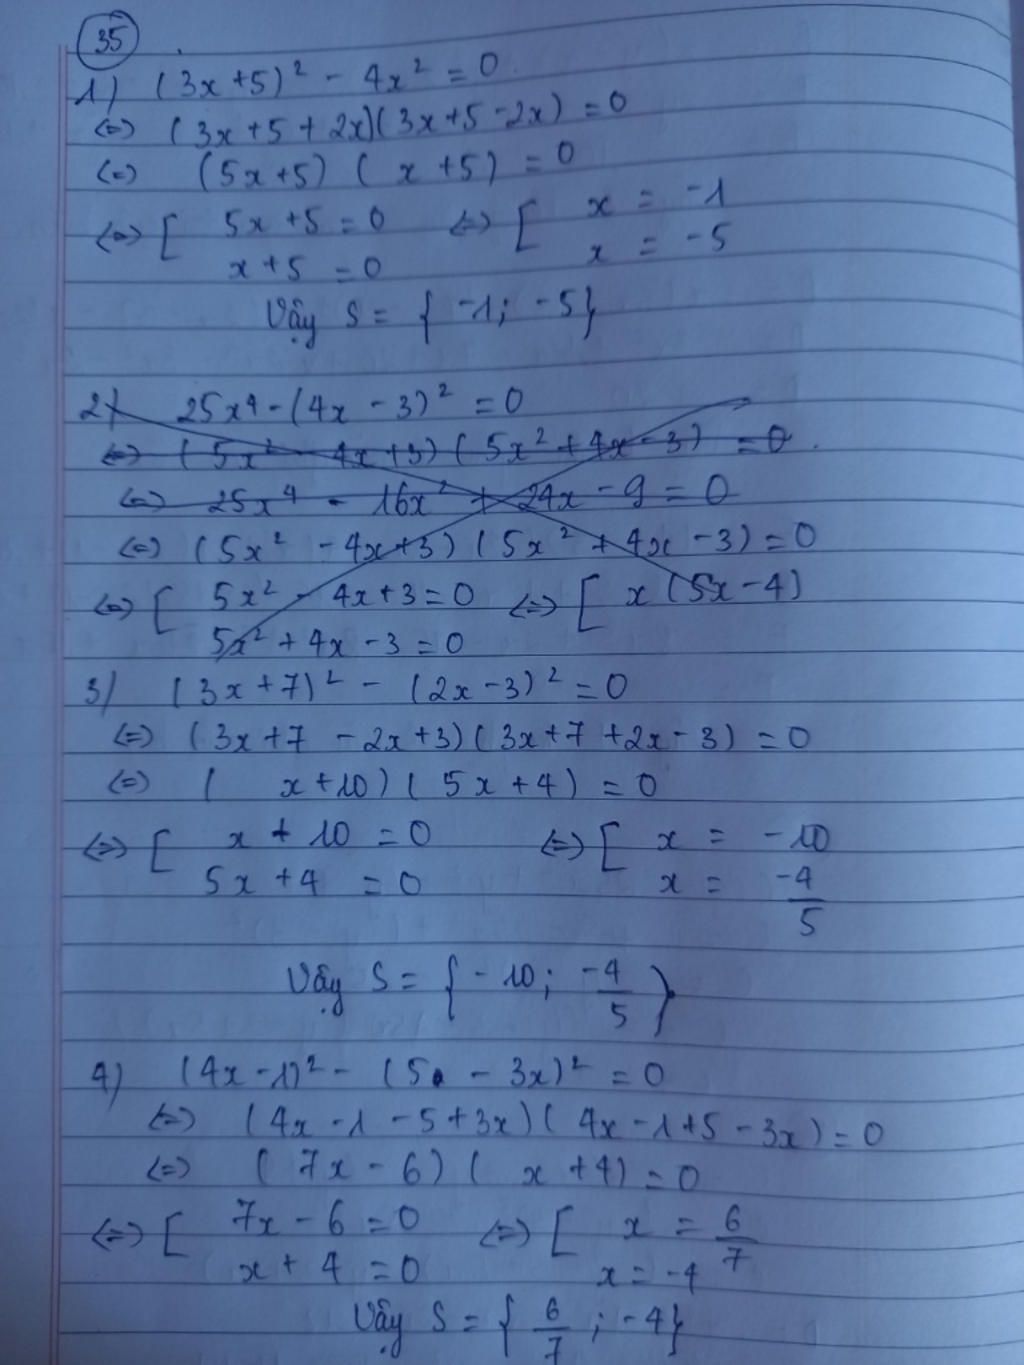 35
1) (3x+5)² - 4x² = 0
<=> (3x+5+2x)(3x+5-2x) = 0
<=> (5x+5) ( x+5) = 0
<=> [ 5x+5 = 0 <=> [ x = -1
x+5 = 0 x = -5
Vậy S = { -1; -5}
2) 25x⁴ - (4x - 3)² = 0
<=> (5x² - 4x+3) (5x² + 4x - 3) = 0
<=> 25x⁴ - 16x² + 24x - 9 = 0
<=> (5x² - 4x+3) (5x² + 4x - 3) = 0
<=> [ 5x² - 4x+3 = 0 <=> [ x (5x-4)
5x² + 4x - 3 = 0
3) (3x+7)² - (2x-3)² = 0
<=> (3x+7 - 2x+3)(3x+7+2x-3) = 0
<=> ( x+10) ( 5x+4) = 0
<=> [ x + 10 = 0 <=> [ x = -10
5x + 4 = 0 x = -4/5
Vậy S = { -10; -4/5 }
4) (4x-1)² - (5 - 3x)² = 0
<=> (4x-1-5+3x)( 4x-1+5-3x) = 0
<=> ( 7x - 6) ( x+4) = 0
<=> [ 7x - 6 = 0 <=> [ x = 6/7
x + 4 = 0 x = -4
Vậy S = { 6/7 ; -4}